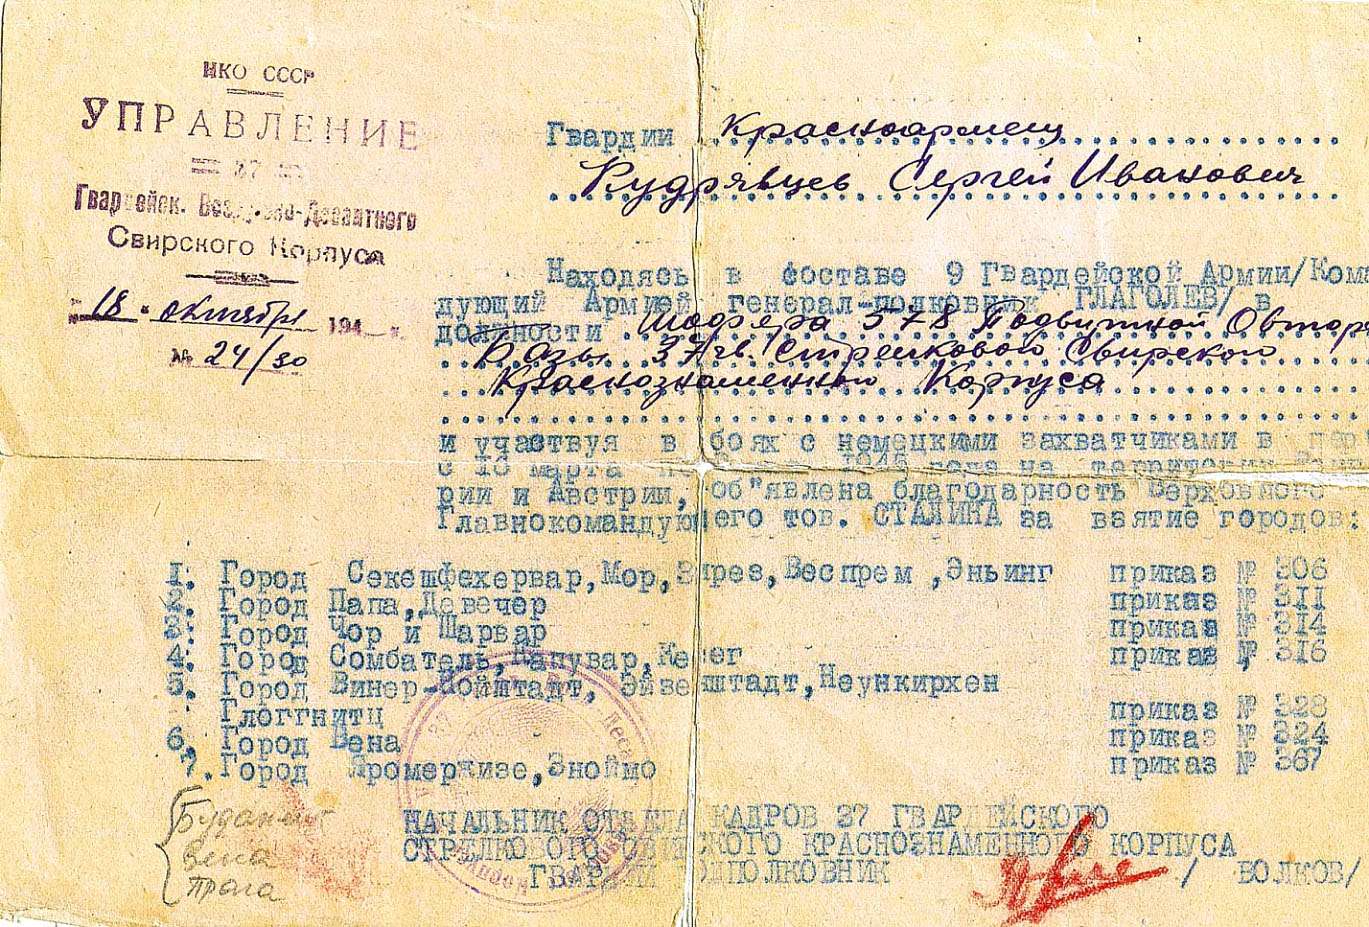 НКО СССР
УПРАВЛЕНИЕ
37
Гвардейск. Воздушно-Десантного
Свирского Корпуса
"18" октября 194 г.
№ 24/30
Гвардии Красноармеец
Кудрявцев Сергей Иванович
Находясь в составе 9 Гвардейской Армии/Кома
дующий Армией генерал-полковник ГЛАГОЛЕВ/ в
должности Шофера 578 Подвижной Автор
Базы 37 гв. Стрелковой Свирского
Краснознаменного Корпуса
и участвуя в боях с немецкими захватчиками в пер
с 16 марта по 1945 года на территории
рии и Австрии, об"явлена благодарность Верховного
Главнокомандующего тов. СТАЛИНА за взятие городов:
1. Город Секешфехервар, Мор, Зирез, Веспрем ,Эньинг приказ № 306
2. Город Папа, Девечер приказ № 311
3. Город Чор и Шарвар приказ № 314
4. Город Сомбатель, Капувар, Кесег приказ № 316
5. Город Винер-Нойштадт, Эйзенштадт, Неункирхен
Глоггнитц приказ № 328
6. Город Вена приказ № 324
7. Город Яромержизе, Зноймо приказ № 367
Будапешт
вена
Прага
НАЧАЛЬНИК ОТДЕЛА КАДРОВ 37 ГВАРДЕЙСКОГО
СТРЕЛКОВОГО СВИРСКОГО КРАСНОЗНАМЕННОГО КОРПУСА
ГВАРДИИ ПОДПОЛКОВНИК / ВОЛКОВ/